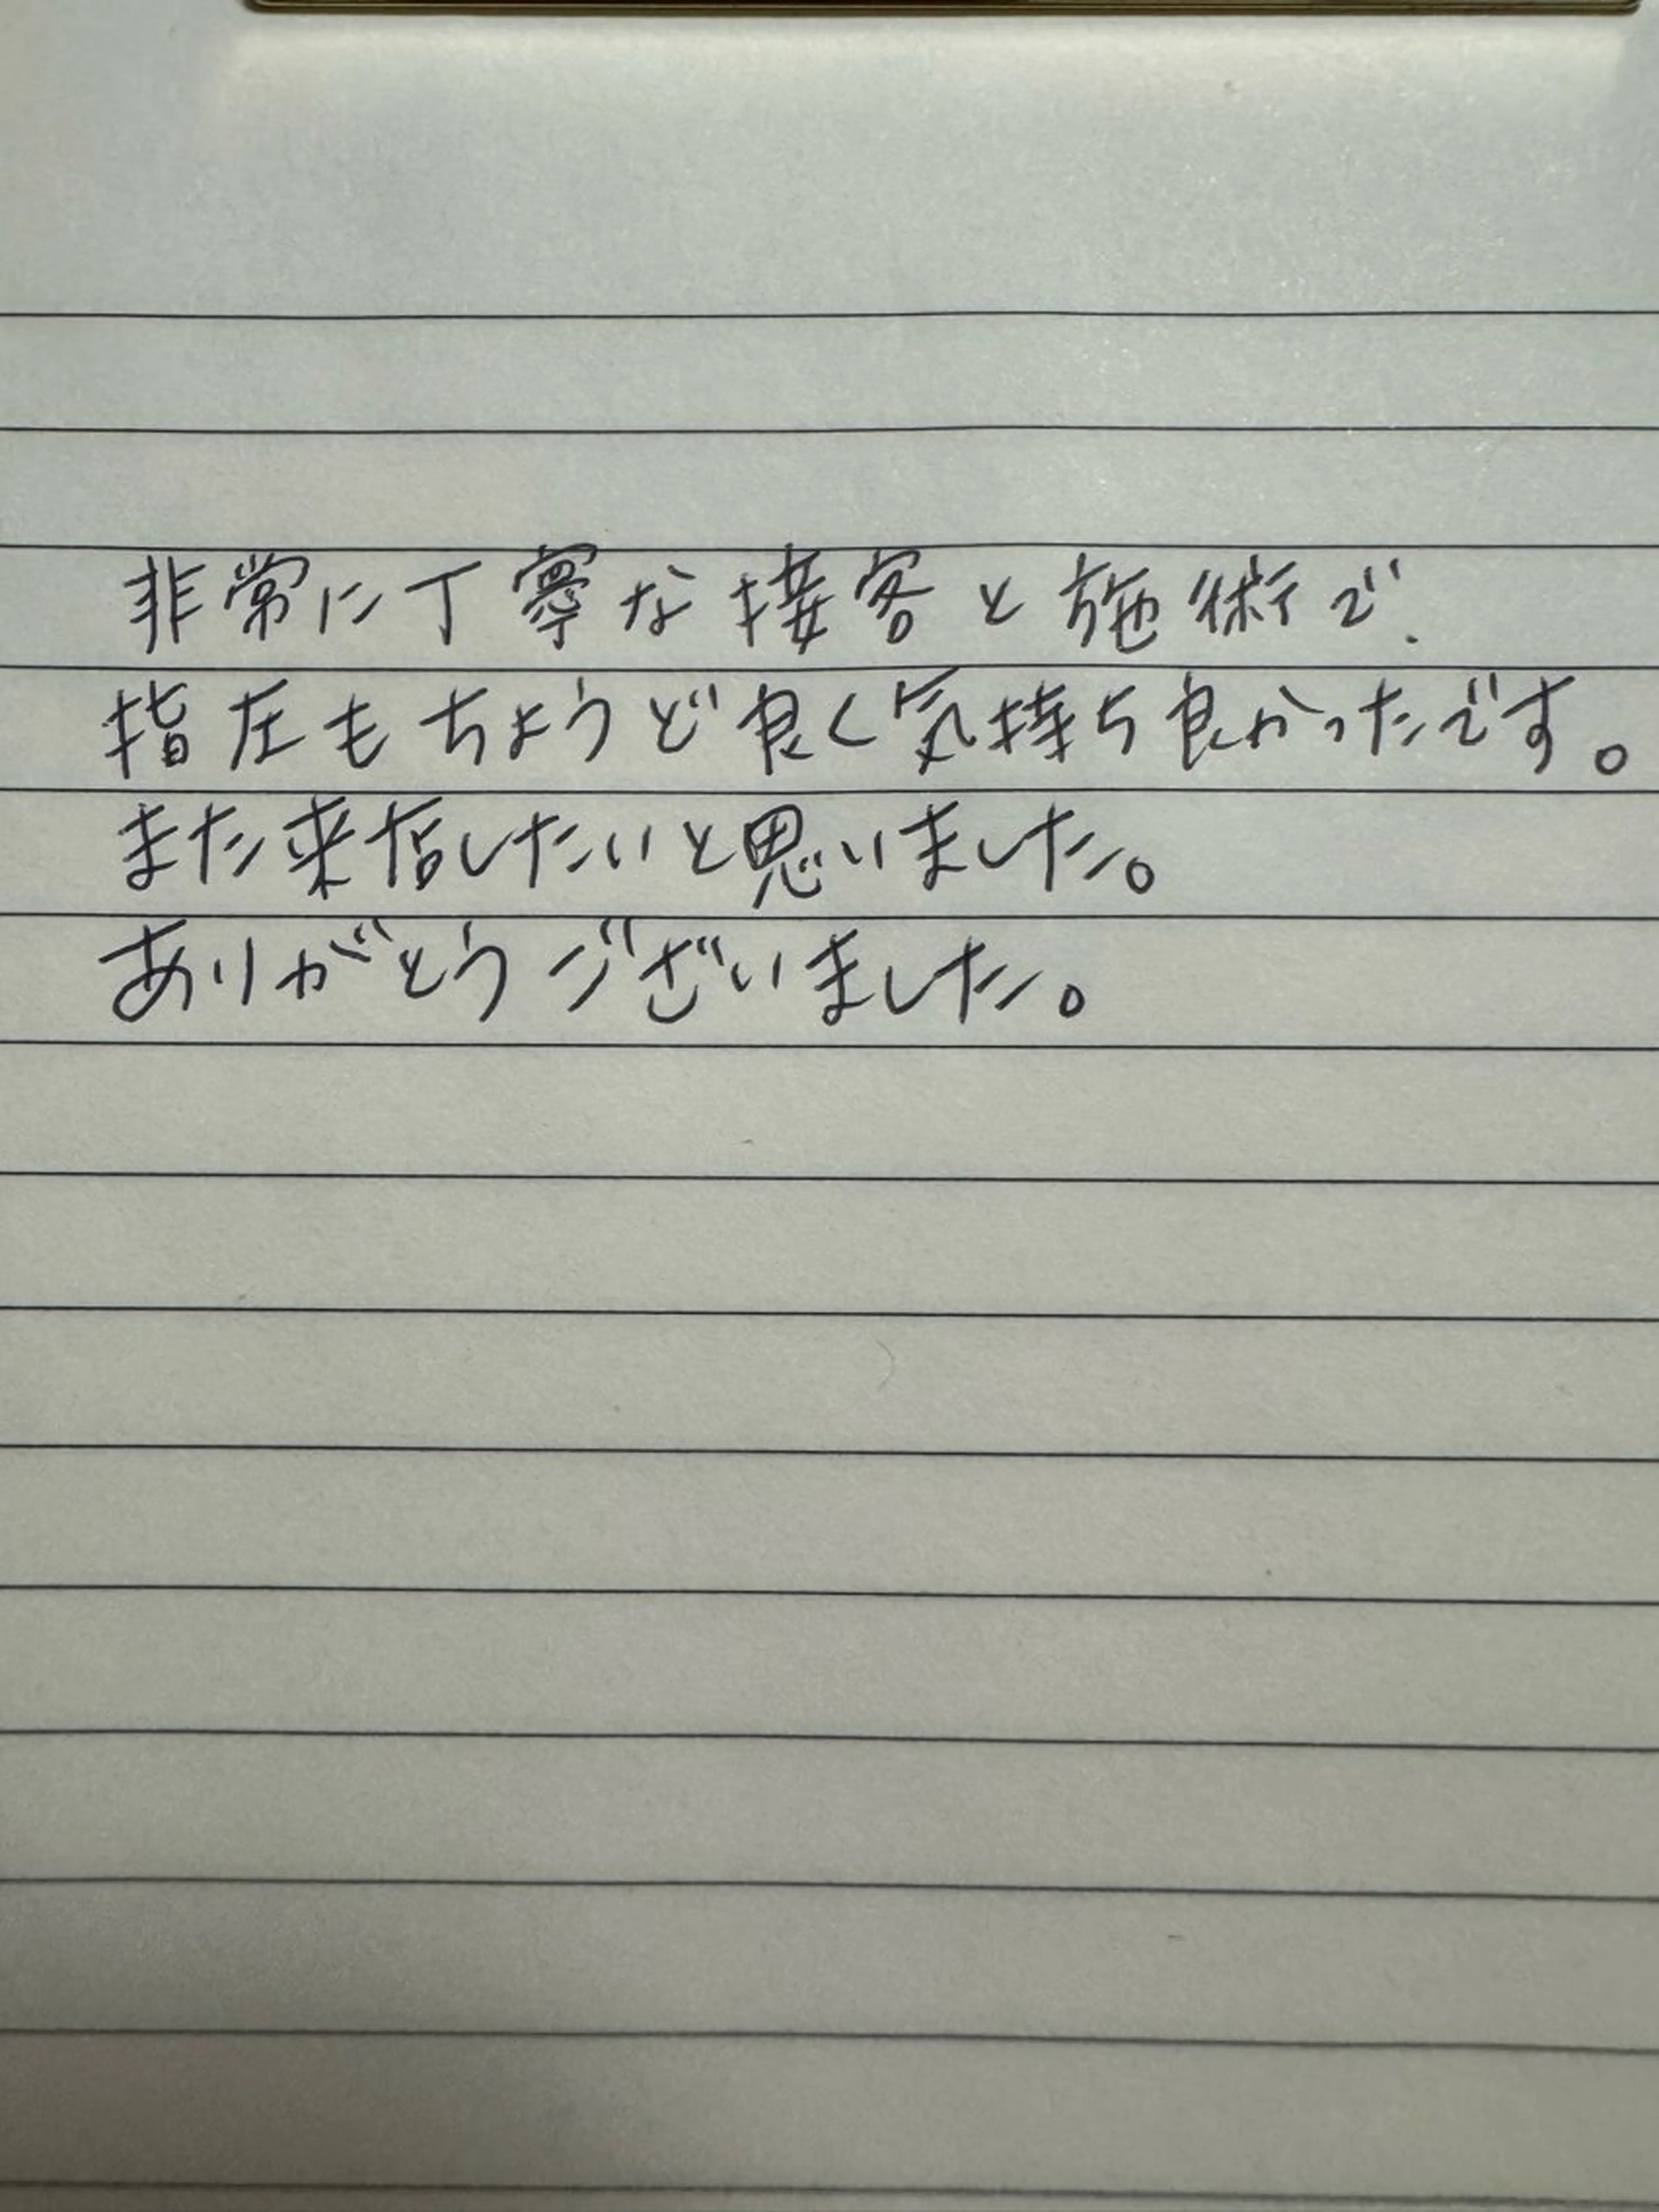 非常に丁寧な接客と施術で、
指圧もちょうど良く気持ち良かったです。
また来店したいと思いました。
ありがとうございました。